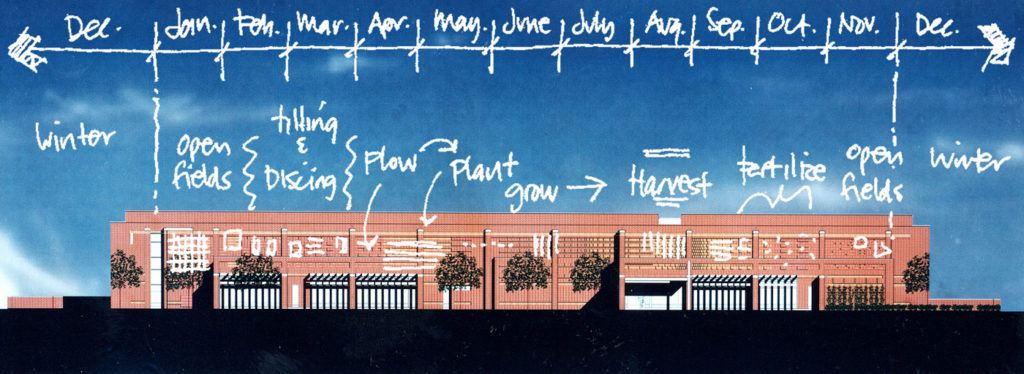 Dec. Jan. Feb. Mar. Apr. May. June July Aug. Sep. Oct. Nov. Dec.
Winter
open
fields
tilling
&
Discing
Plow
Plant
grow
Harvest
fertilize
open
fields
Winter